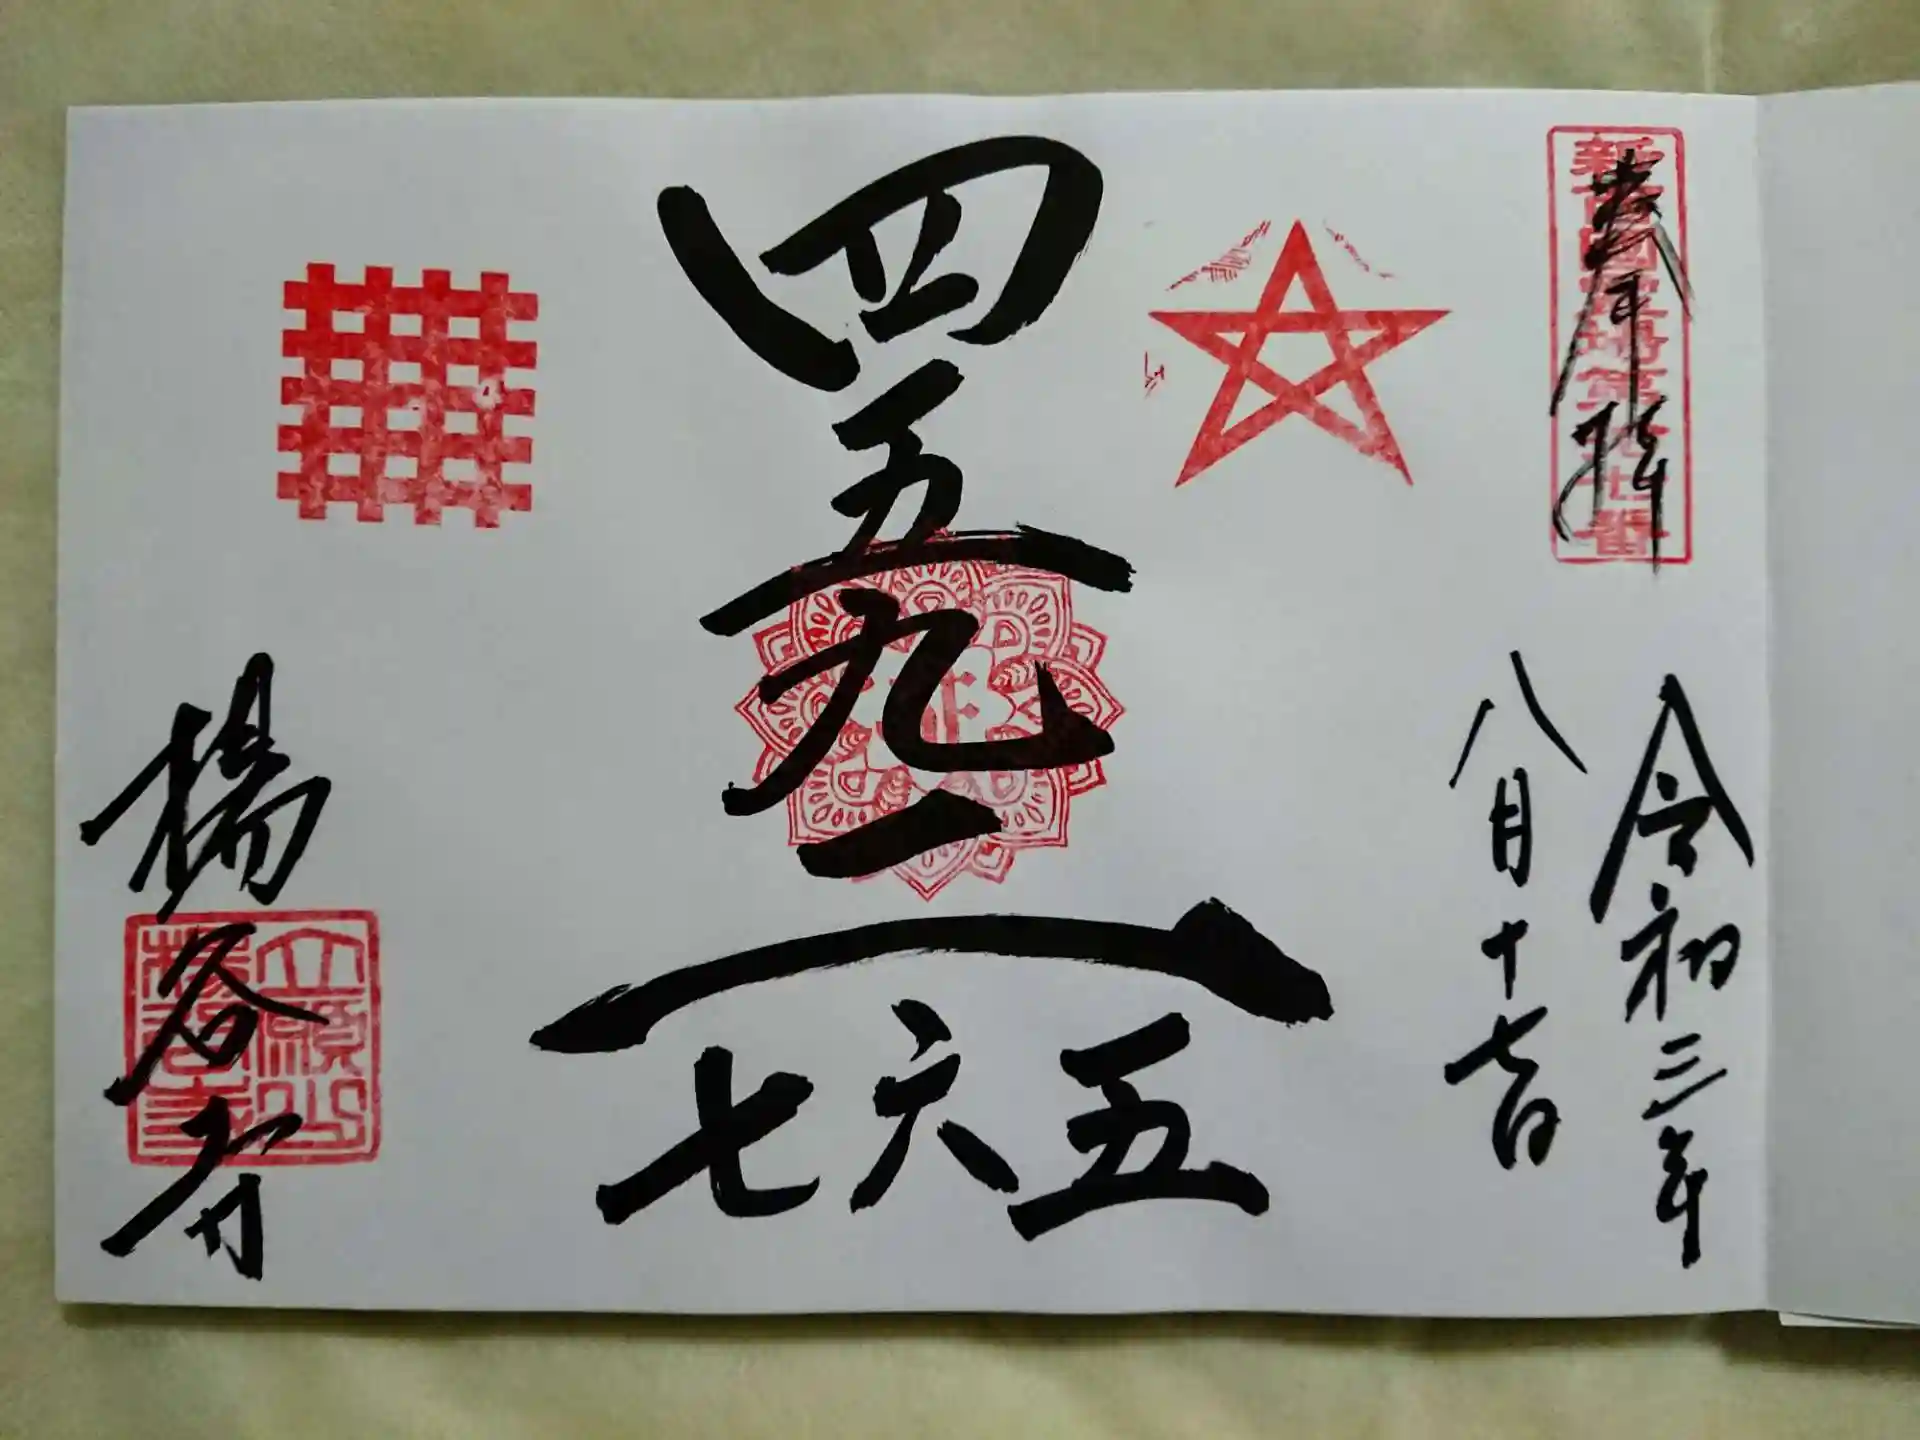 奉拝
新西国霊場第十七番
令和三年
八月十七日
四五九一
五六七
立願山
楊谷寺
楊谷寺